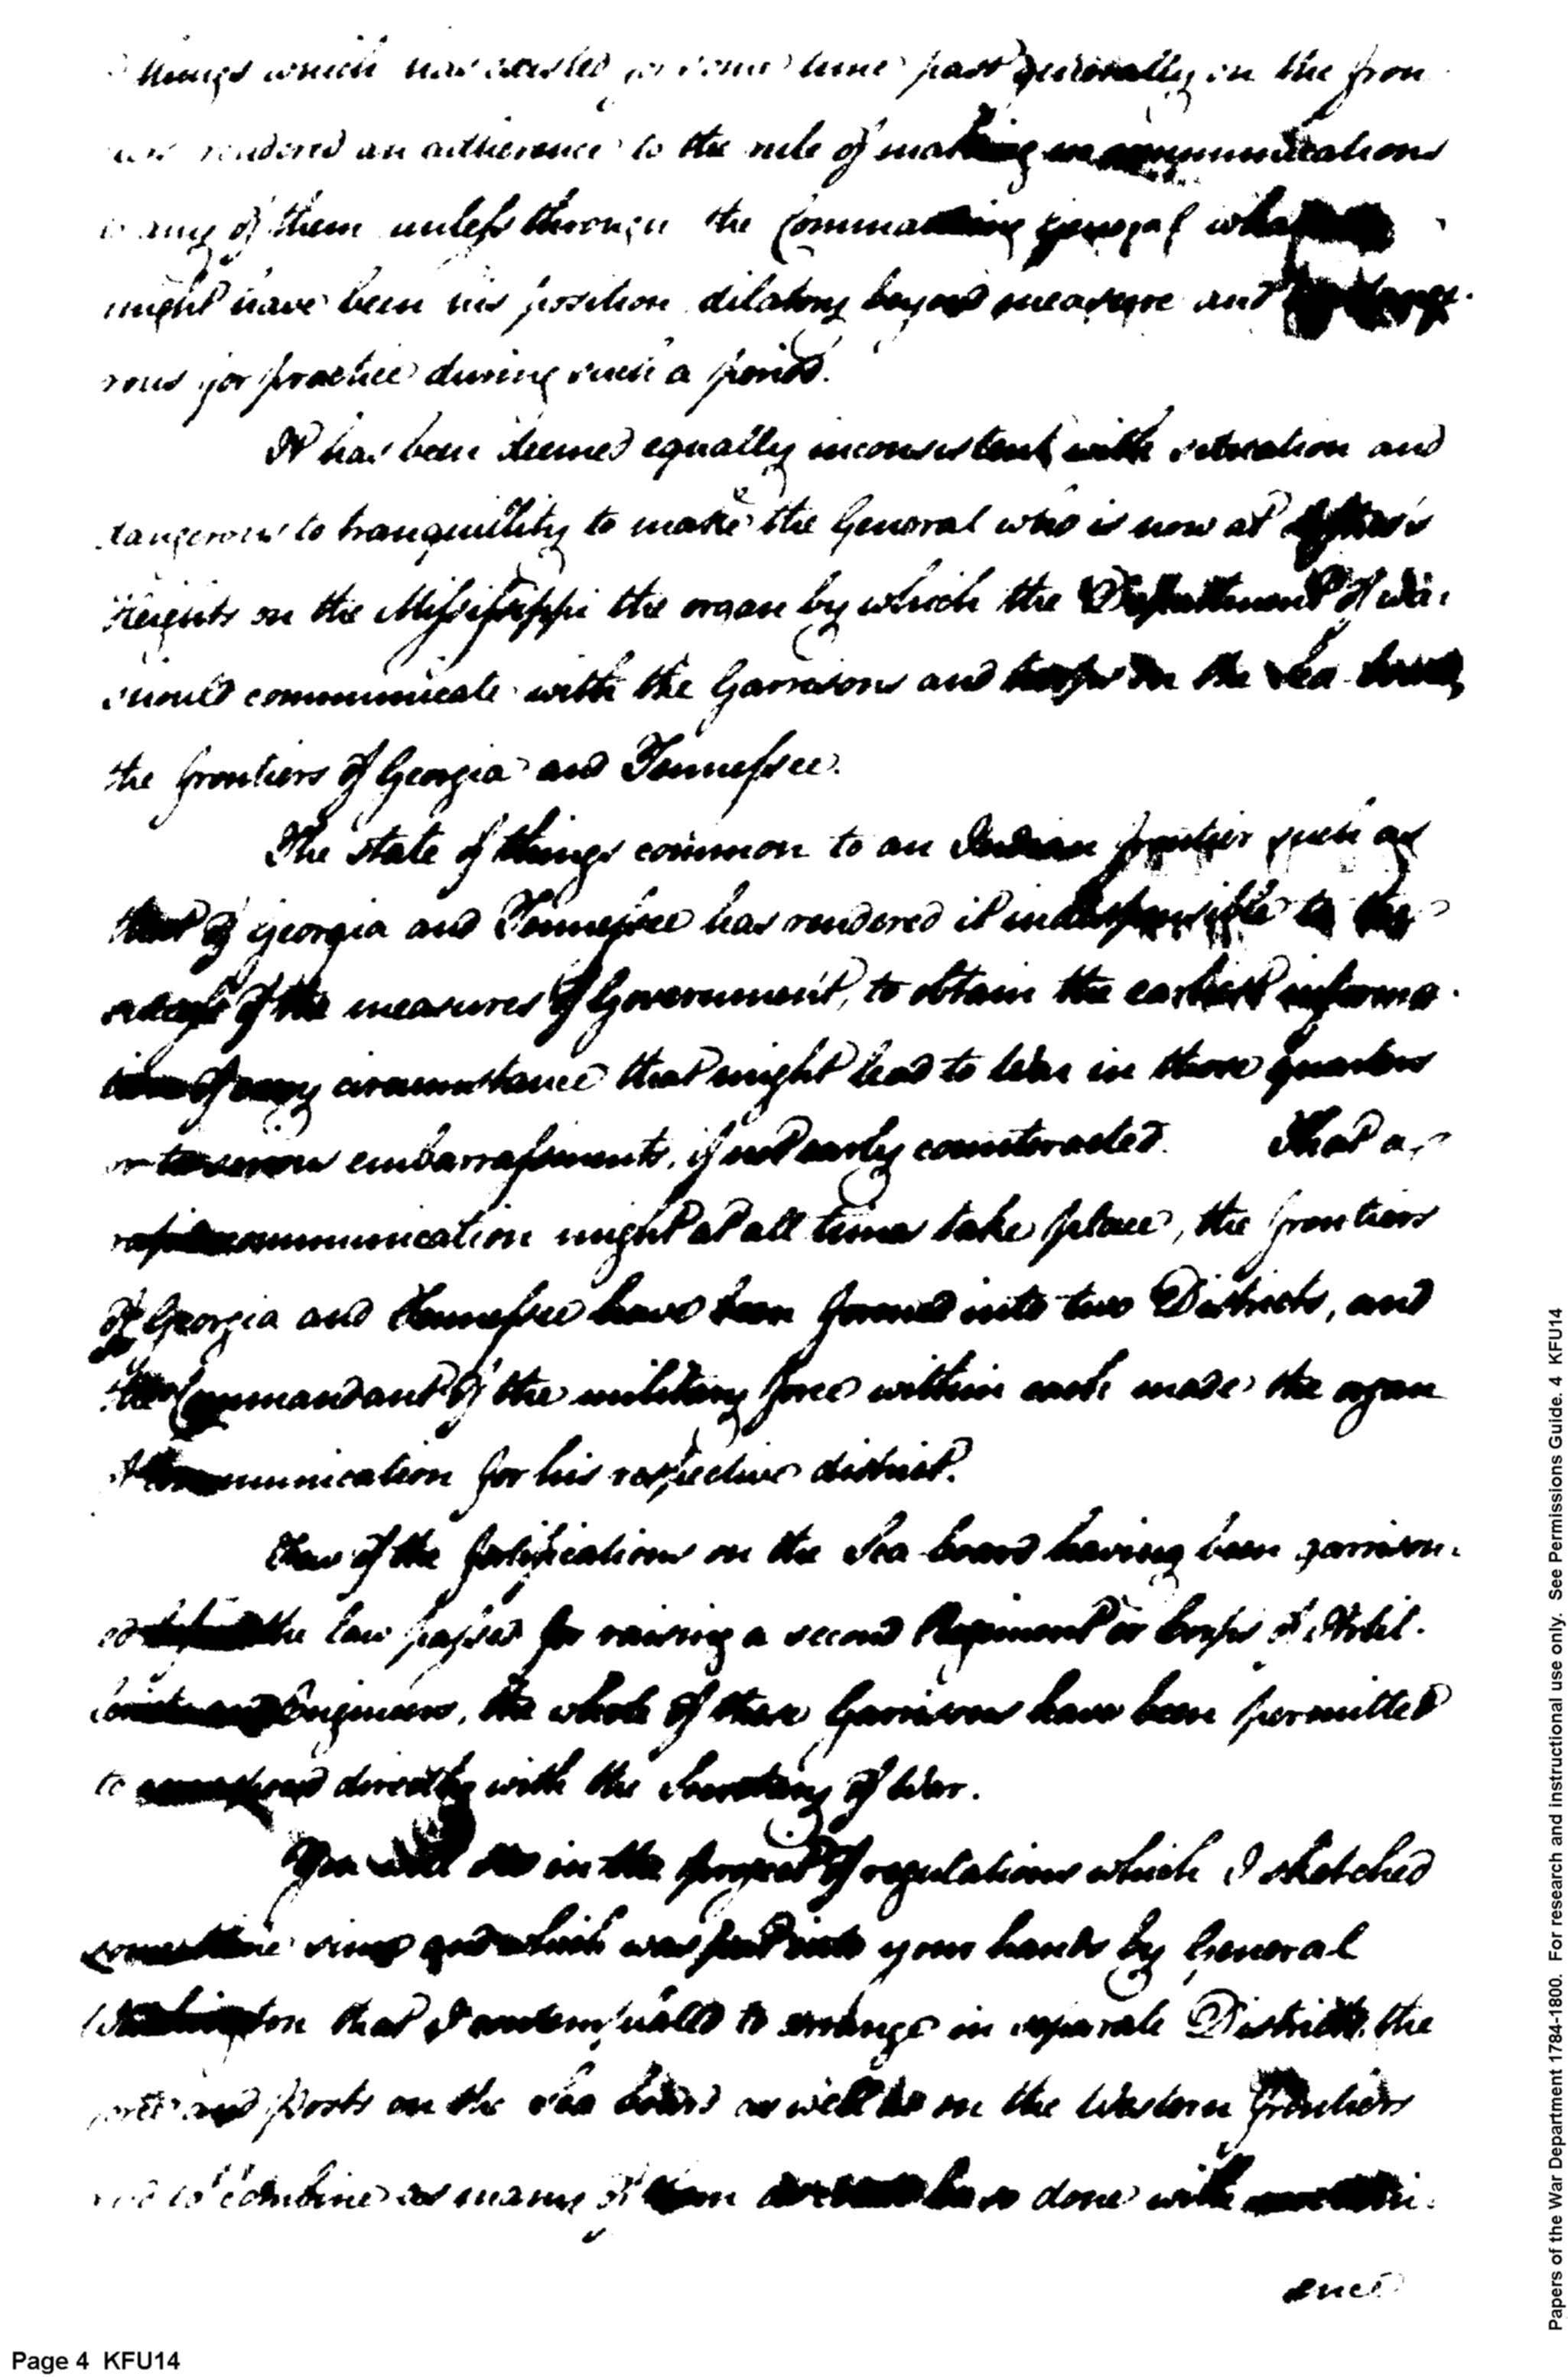 things which has existed for some time past generally on the fron
has rendered an adherence to the rule of making no communications
to any of them unless through the Commanding general whatever
might have been his position dilatory beyond measure and dange-
rous for practice during such a period.
It has been deemed equally inconsistent with situation and
dangerous to tranquillity to make the General who is now at Loftus's
Heights on the Missisippi the organ by which the Department of War
should communicate with the Garrisons and troops on the Sea board,
the frontiers of Georgia and Tennessee.
The state of things common to an Indian frontier such as
that of Georgia and Tennessee has rendered it indispensible to the
success of the measures of Government, to obtain the earliest informa-
tion of any circumstance that might lead to War in those quarters
or to serious embarrassments, if not early counteracted. That a
rapid communication might at all times take place, the frontiers
of Georgia and Tennessee have been formed into two Districts, and
the Commandant of the military force within each made the organ
of communication for his respective district.
Few of the fortifications on the Sea board having been garrison-
ed before the law passed for raising a second Regiment or Corps of Artil-
lerists and Engineers, the whole of these Garrisons have been permitted
to correspond directly with the Secretary of War.
You will see in the project of regulations which I sketched
some time since and which was put into your hands by General
Washington that I contemplated to arrange in separate Districts, the
forts and posts on the Sea board as well as on the Western frontiers
and to combine as many of them as could be so done with conveni-
ence
Page 4 KFU14
Papers of the War Department 1784-1800. For research and instructional use only. See Permissions Guide. 4 KFU14